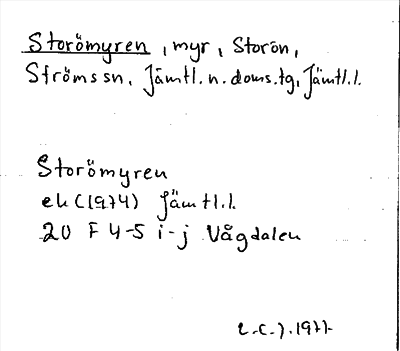 Storömyren, myr, Storön,
Ströms sn, Jämtl. n. doms.tg, Jämtl.l.
Storömyren
ek (1974) Jämtl.l.
20 F 4-5 i-j Vågdalen
1977